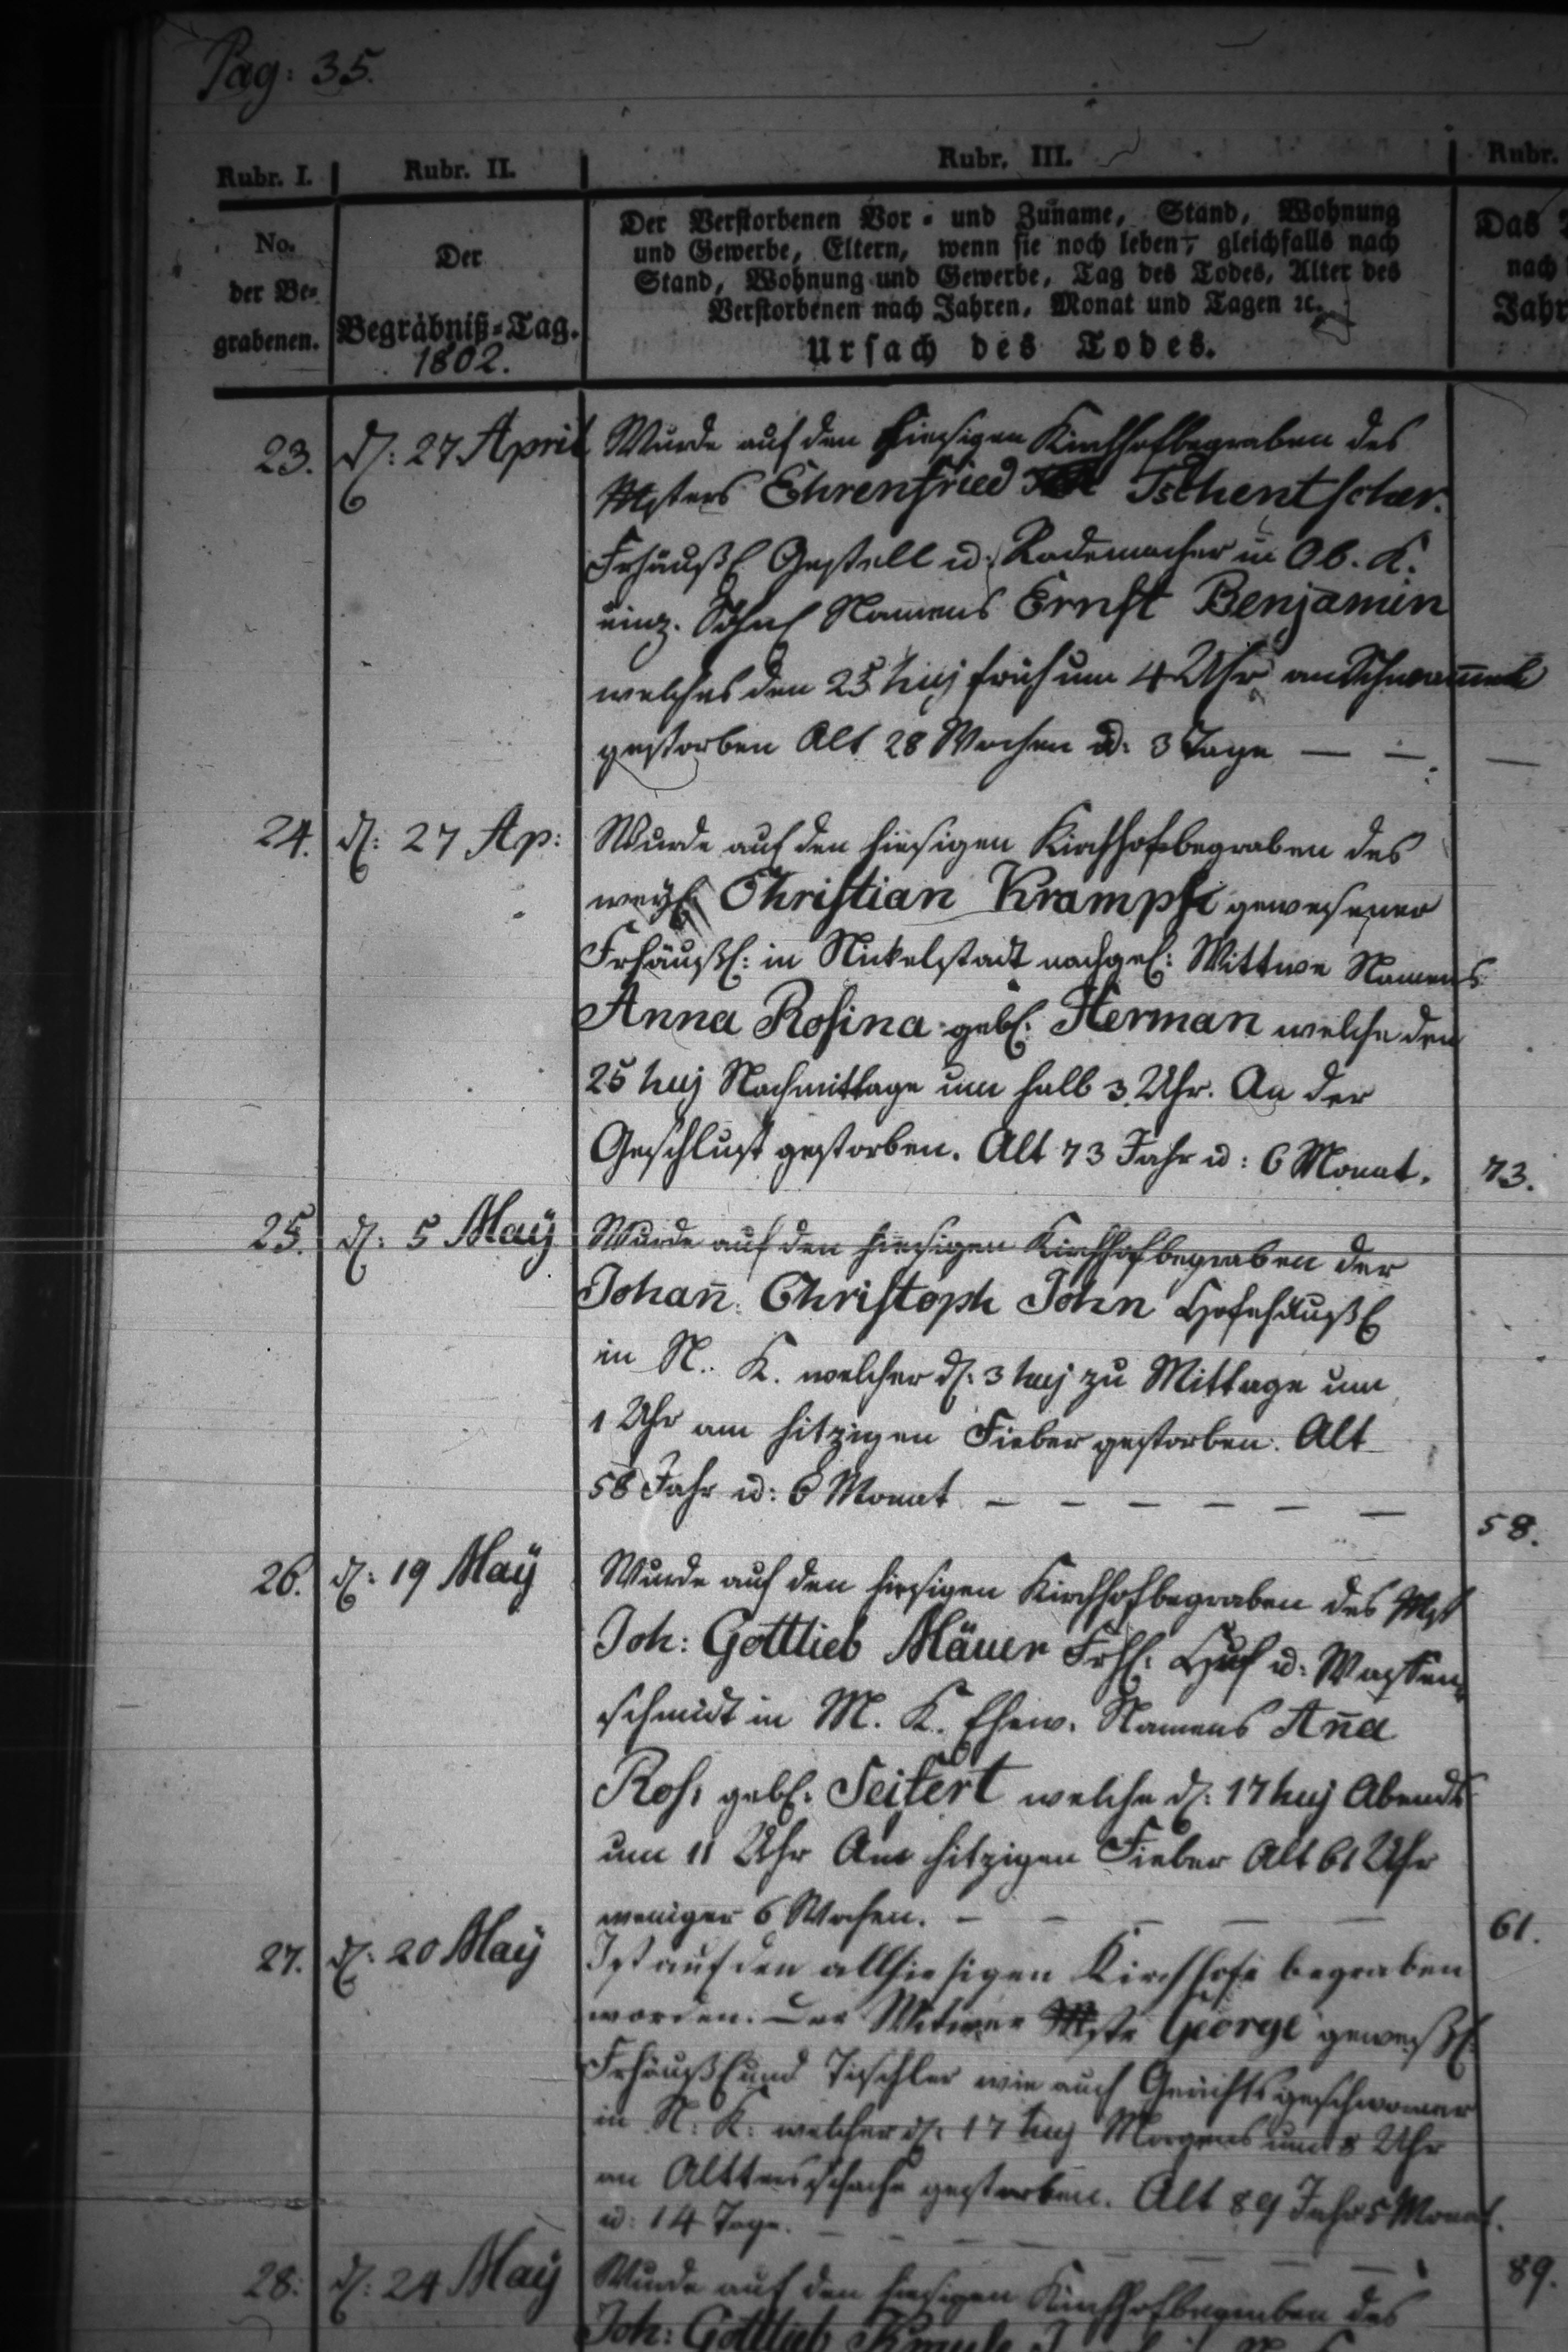 Pag: 35.
Rubr. I. Rubr. II. Rubr. III. Rubr.
No. der Be= grabenen.
Der Begräbniß=Tag. 1802.
Der Verstorbenen Vor= und Zuname, Stand, Wohnung
und Gewerbe, Eltern, wenn sie noch leben, gleichfalls nach
Stand, Wohnung und Gewerbe, Tag des Todes, Alter des
Verstorbenen nach Jahren, Monat und Tagen ꝛc.
Ursach des Todes.
Das
nach
Jahr
23. d: 27 April Wurde auf den hiesigen Kirchhof begraben des
Msters Ehrenfried Tschentscher.
Frhäußl Gestell u: Rademacher in Ob. K.
einz. Söhnl Namens Ernst Benjamin
welches den 25 huj früh um 4 Uhr an
gestorben Alt 28 Wochen u: 3 Tage — — —
24. d: 27 Ap: Wurde auf den hiesigen Kirchhof begraben des
weyl Christian Krampf gewesener
Frhäußl: in Nickelstadt nachgel: Wittwe Namens
Anna Rosina gebl: Herman welche den
25 huj Nachmittage um halb 3 Uhr. An der
Geschlust gestorben. Alt 73 Jahr u: 6 Monat. 73.
25. d: 5 Maÿ Wurde auf den hiesigen Kirchhof begraben der
Johan̄: Christoph John Hofehäußl
in N. K. welcher d: 3 huj zu Mittage um
1 Uhr am hitzigen Fieber gestorben. Alt
58 Jahr u: 6 Monat — — — — — — 58.
26. d: 19 Maÿ Wurde auf den hiesigen Kirchhof begraben des Mst
Joh: Gottlieb Mäuer Frhl: Huf u: Waffen
schmidt in M. K. Ehew. Namens An̄a
Ros: gebl: Seifert welche d: 17 huj Abends
um 11 Uhr Am hitzigen Fieber Alt 61 Uhr
weniger 6 Wochen. — — — — — 61.
27. d: 20 Maÿ Ist auf den allhiesigen Kirchhofe begraben
worden. Der Witwer Mstr George
Frhäußl und Tischler wie auch Gerichtsgeschworner
in N: K: welcher d: 17 huj Morgens um 8 Uhr
an gestorben. Alt 89 Jahr 5 Monat.
u: 14 Tage. — — — — — — — 89.
28: d: 24 Maÿ Wurde auf den hiesigen Kirchhof begraben des
Joh: Gottlieb